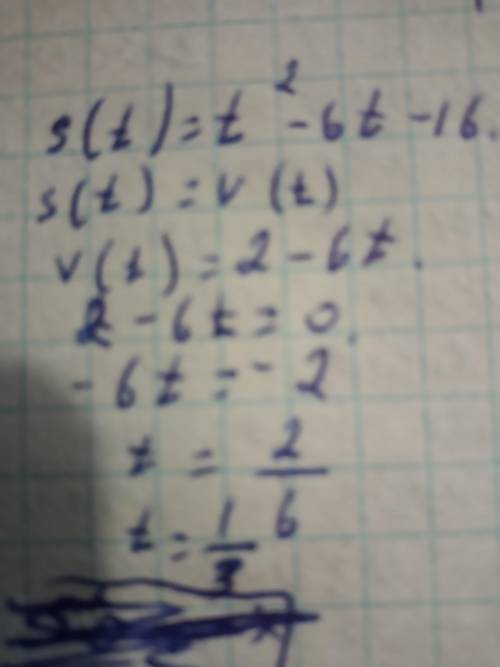 s(t) = t² - 6t - 16.
s(t) = v(t)
v(t) = 2 - 6t.
2 - 6t = 0.
- 6t = - 2
t = 2/6
t = 1/3